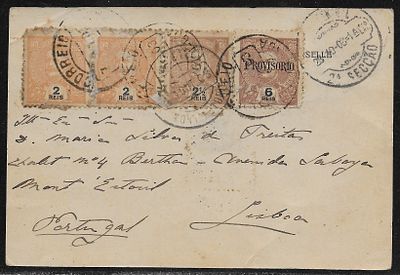 CORREIO
2 REIS
2 REIS
2½ REIS
PROVISORIO
6 REIS
SECÇÃO
D. Maria Silva de Freitas
Chalet nº 4 Bertha - Avenida Saboya
Mont' Estoril
Portugal Lisboa